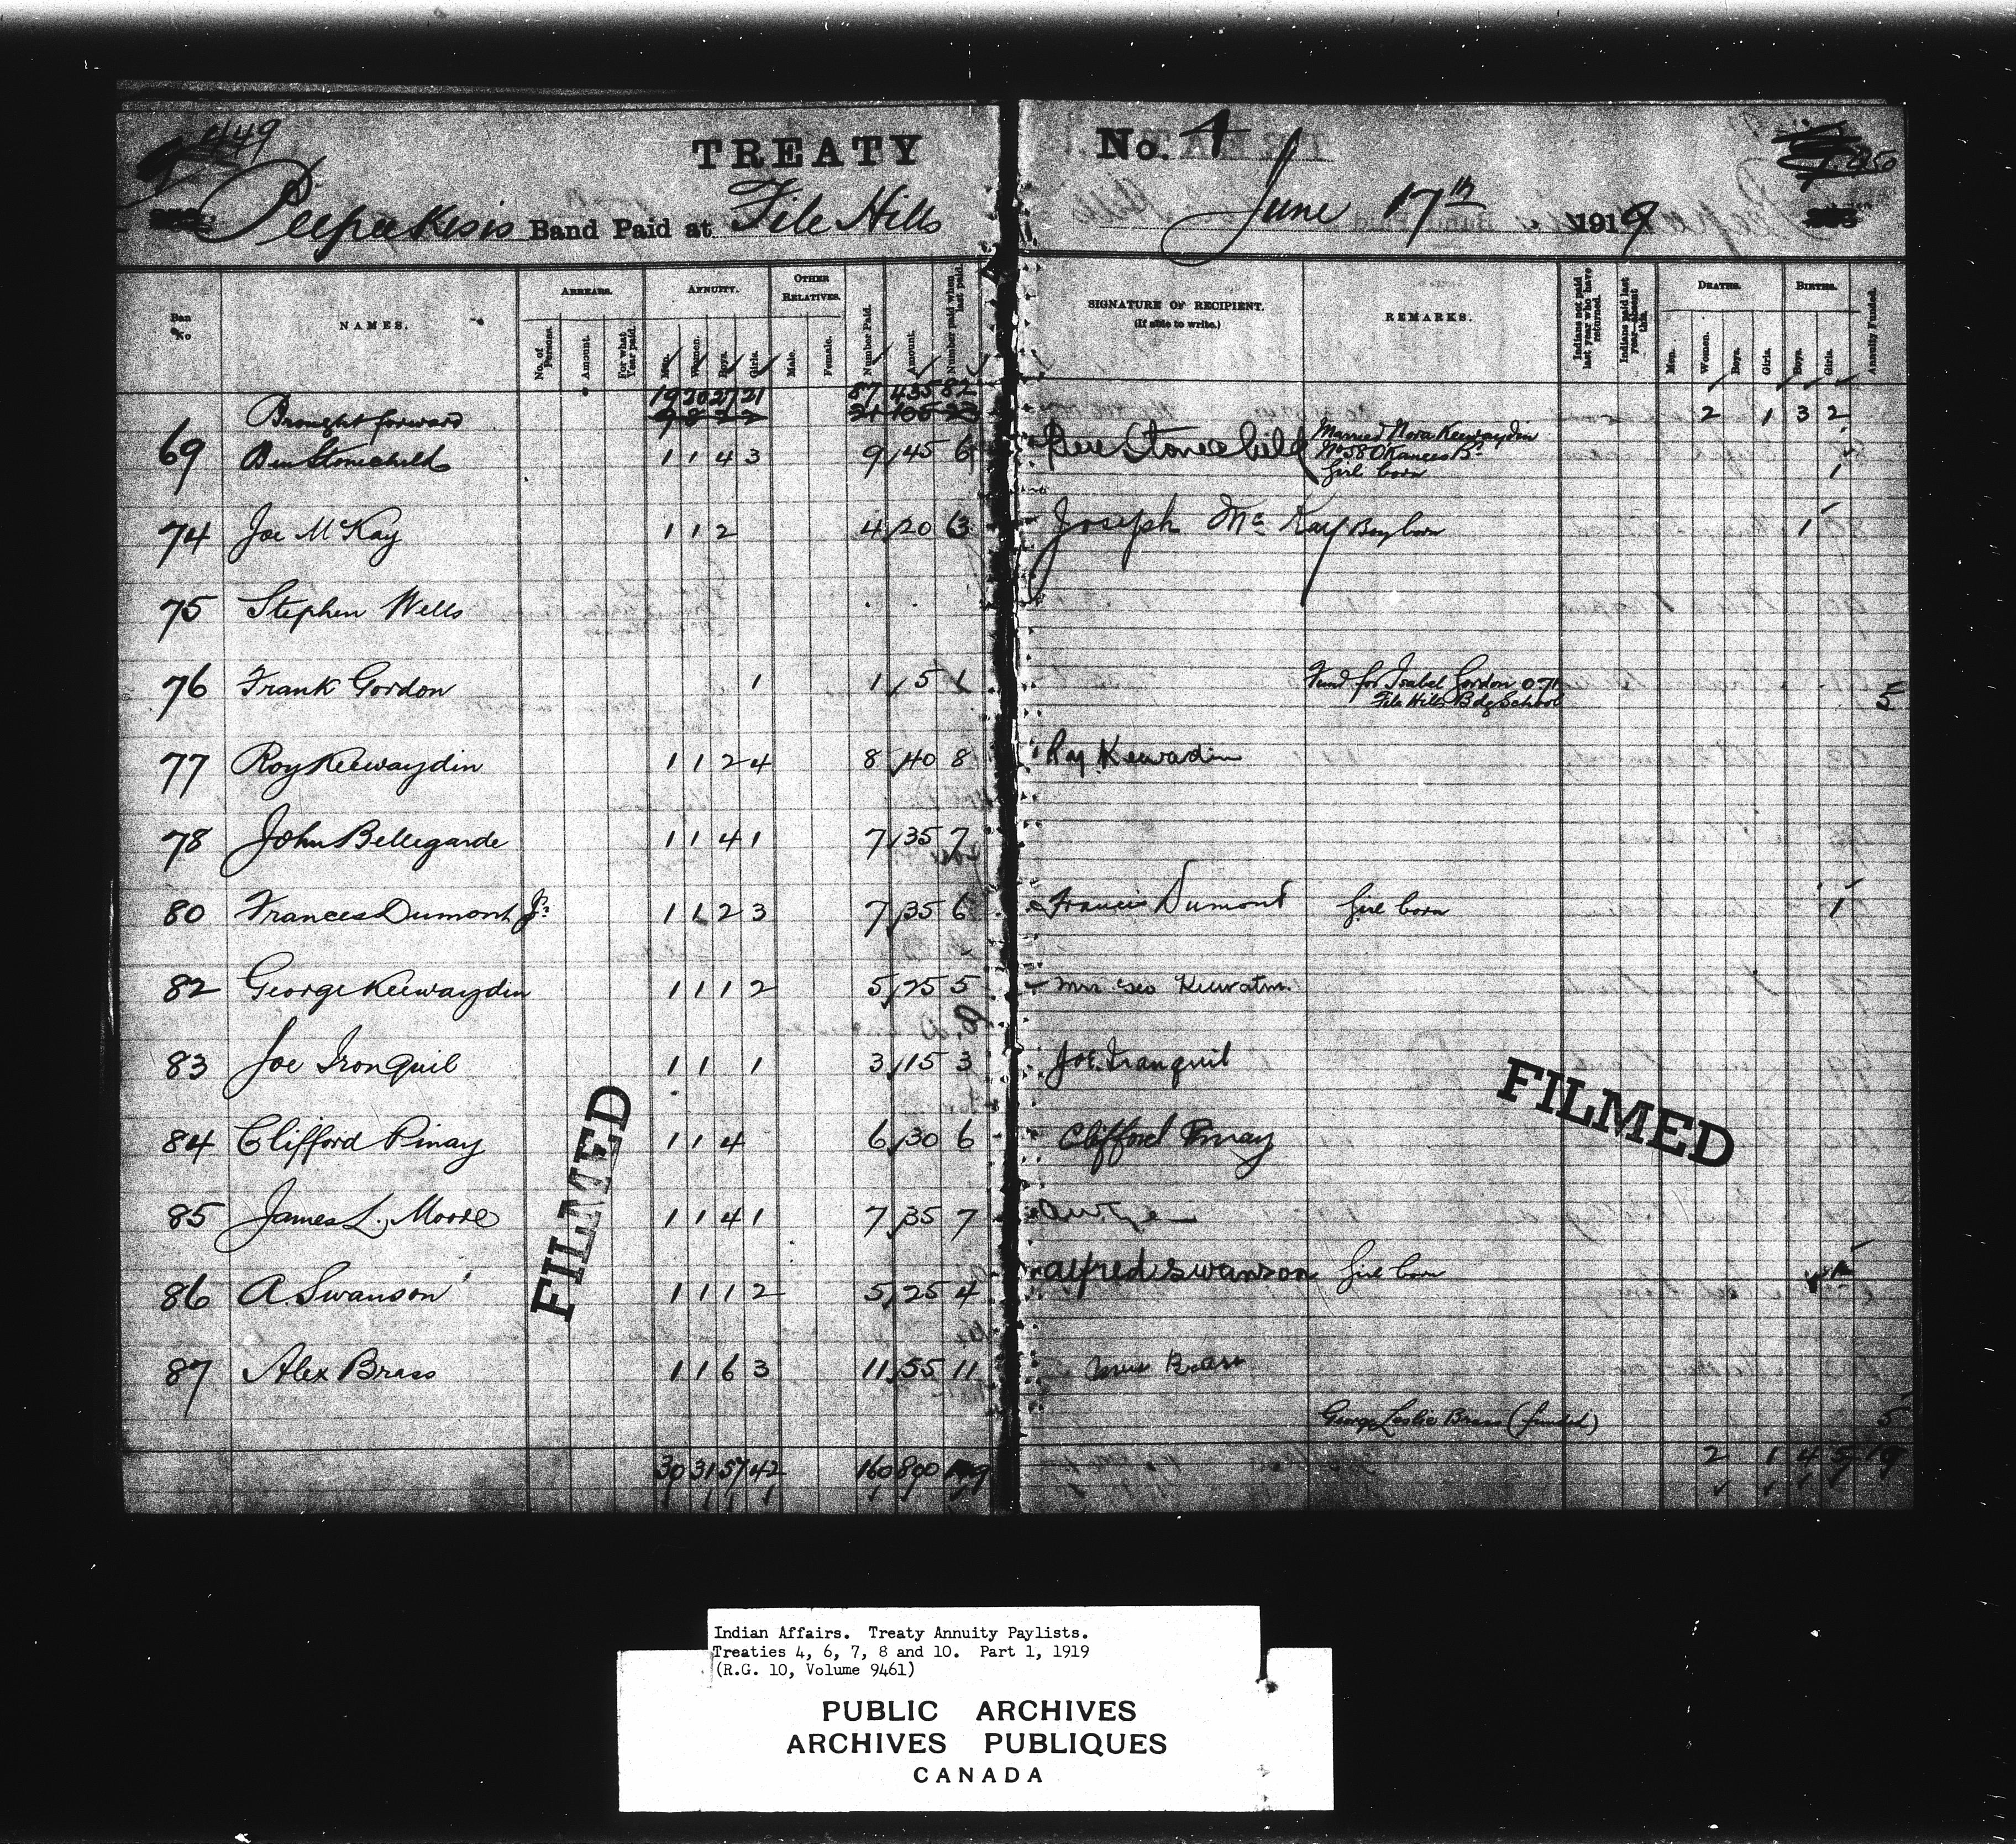 449
TREATY No. 4
450
Peepeekisis Band Paid at File Hills June 17th 1919
Band No
NAMES.
ARREARS.
No. of Persons.
Amount.
For what Year paid.
ANNUITY.
Men.
Women.
Boys.
Girls.
OTHER RELATIVES.
Male.
Female.
Number Paid.
Amount.
Number paid when last paid.
SIGNATURE OF RECIPIENT.
(If able to write.)
REMARKS.
Indians not paid last year who have returned.
Indians paid last year—absent this.
DEATHS.
Men.
Women.
Boys.
Girls.
BIRTHS.
Boys.
Girls.
Annuity Funded.
19 20 27 21 87 435 82
Brought forward 9 8 2 2 21 105 23 2 1 3 2
69 Ben Stonechild 1 1 4 3 9 45 6 Ben Stonechild Married Nora Keewaydin
No 58 Okanees B.
Girl born 1
74 Joe McKay 1 1 2 4 20 3 Joseph Mc Kay Boy born 1
75 Stephen Wells
76 Frank Gordon 1 1 5 1 Fund for Isabel Gordon 071
File Hills Bdg School 5
77 Roy Keewaydin 1 1 2 4 8 40 8 Roy Keewadin
78 John Bellegarde 1 1 4 1 7 35 7
80 Frances Dumont Jr. 1 1 2 3 7 35 6 Francis Dumont Girl born 1
82 George Keewaydin 1 1 1 2 5 25 5 Mrs Geo Keewatin
83 Joe Ironquil 1 1 1 3 15 3 Joe Iranquil
84 Clifford Pinay 1 1 4 6 30 6 Clifford Pinay
85 James L. Moore 1 1 4 1 7 35 7
86 A. Swanson 1 1 1 2 5 25 4 Alfred Swanson Girl born
87 Alex Brass 1 1 6 3 11 55 11 Brass
George Leslie Brass (funded) 5
30 31 57 42 160 800 149 2 1 4 5 10
FILMED
FILMED
Indian Affairs. Treaty Annuity Paylists.
Treaties 4, 6, 7, 8 and 10. Part 1, 1919
(R.G. 10, Volume 9461)
PUBLIC ARCHIVES
ARCHIVES PUBLIQUES
CANADA